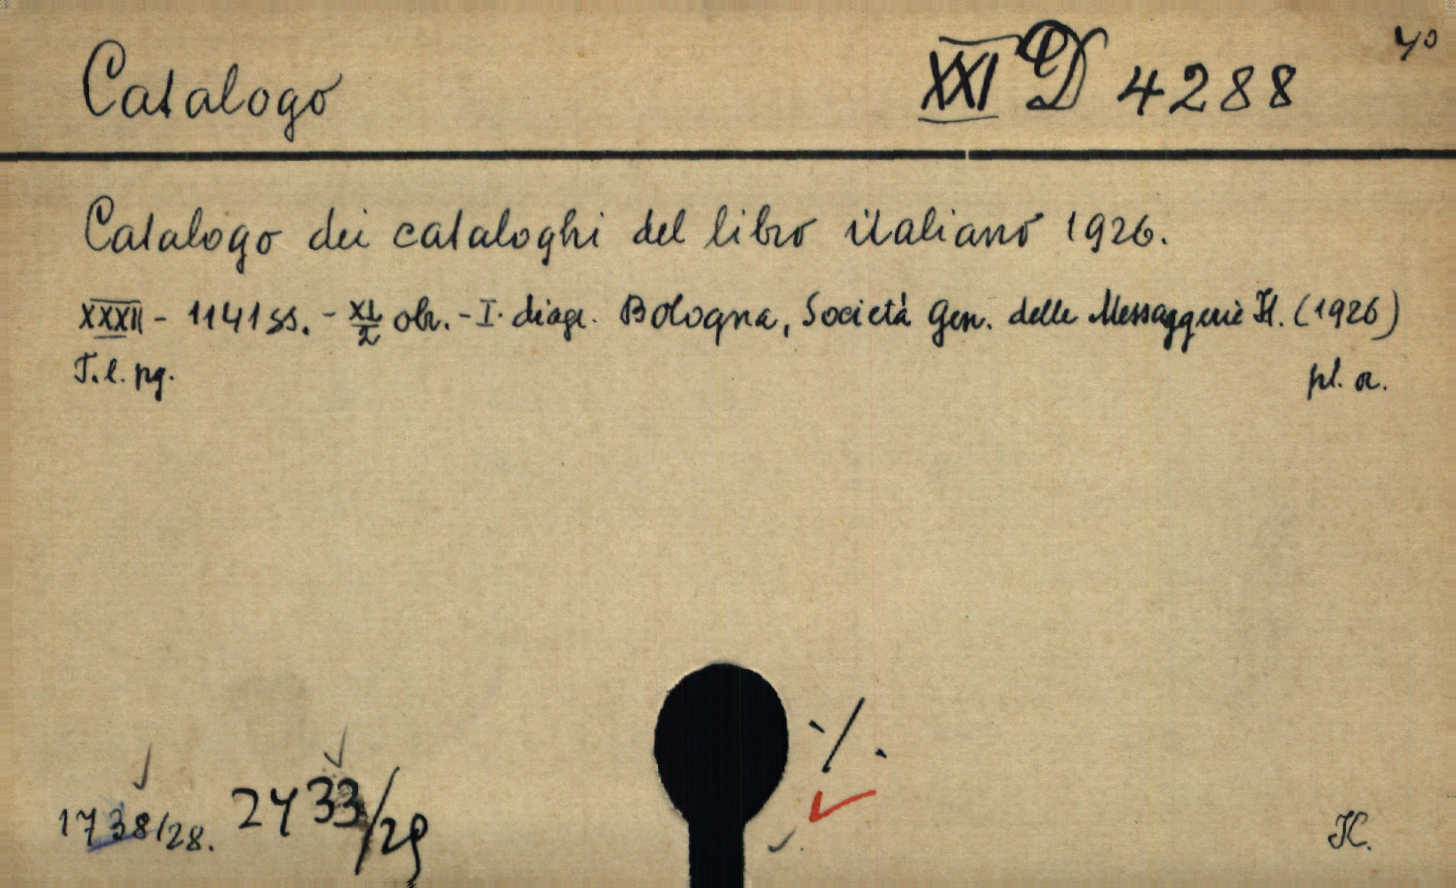 40
Catalogo XXI D 4288
Catalogo dei cataloghi del libro italiano 1926.
XXXII - 1141 ss. - obr. - I. diagr. Bologna, Società Gen. delle Messaggerie It. (1926)
T. l. pg. pl. a.
./.
1738/28. 2433/29
K.